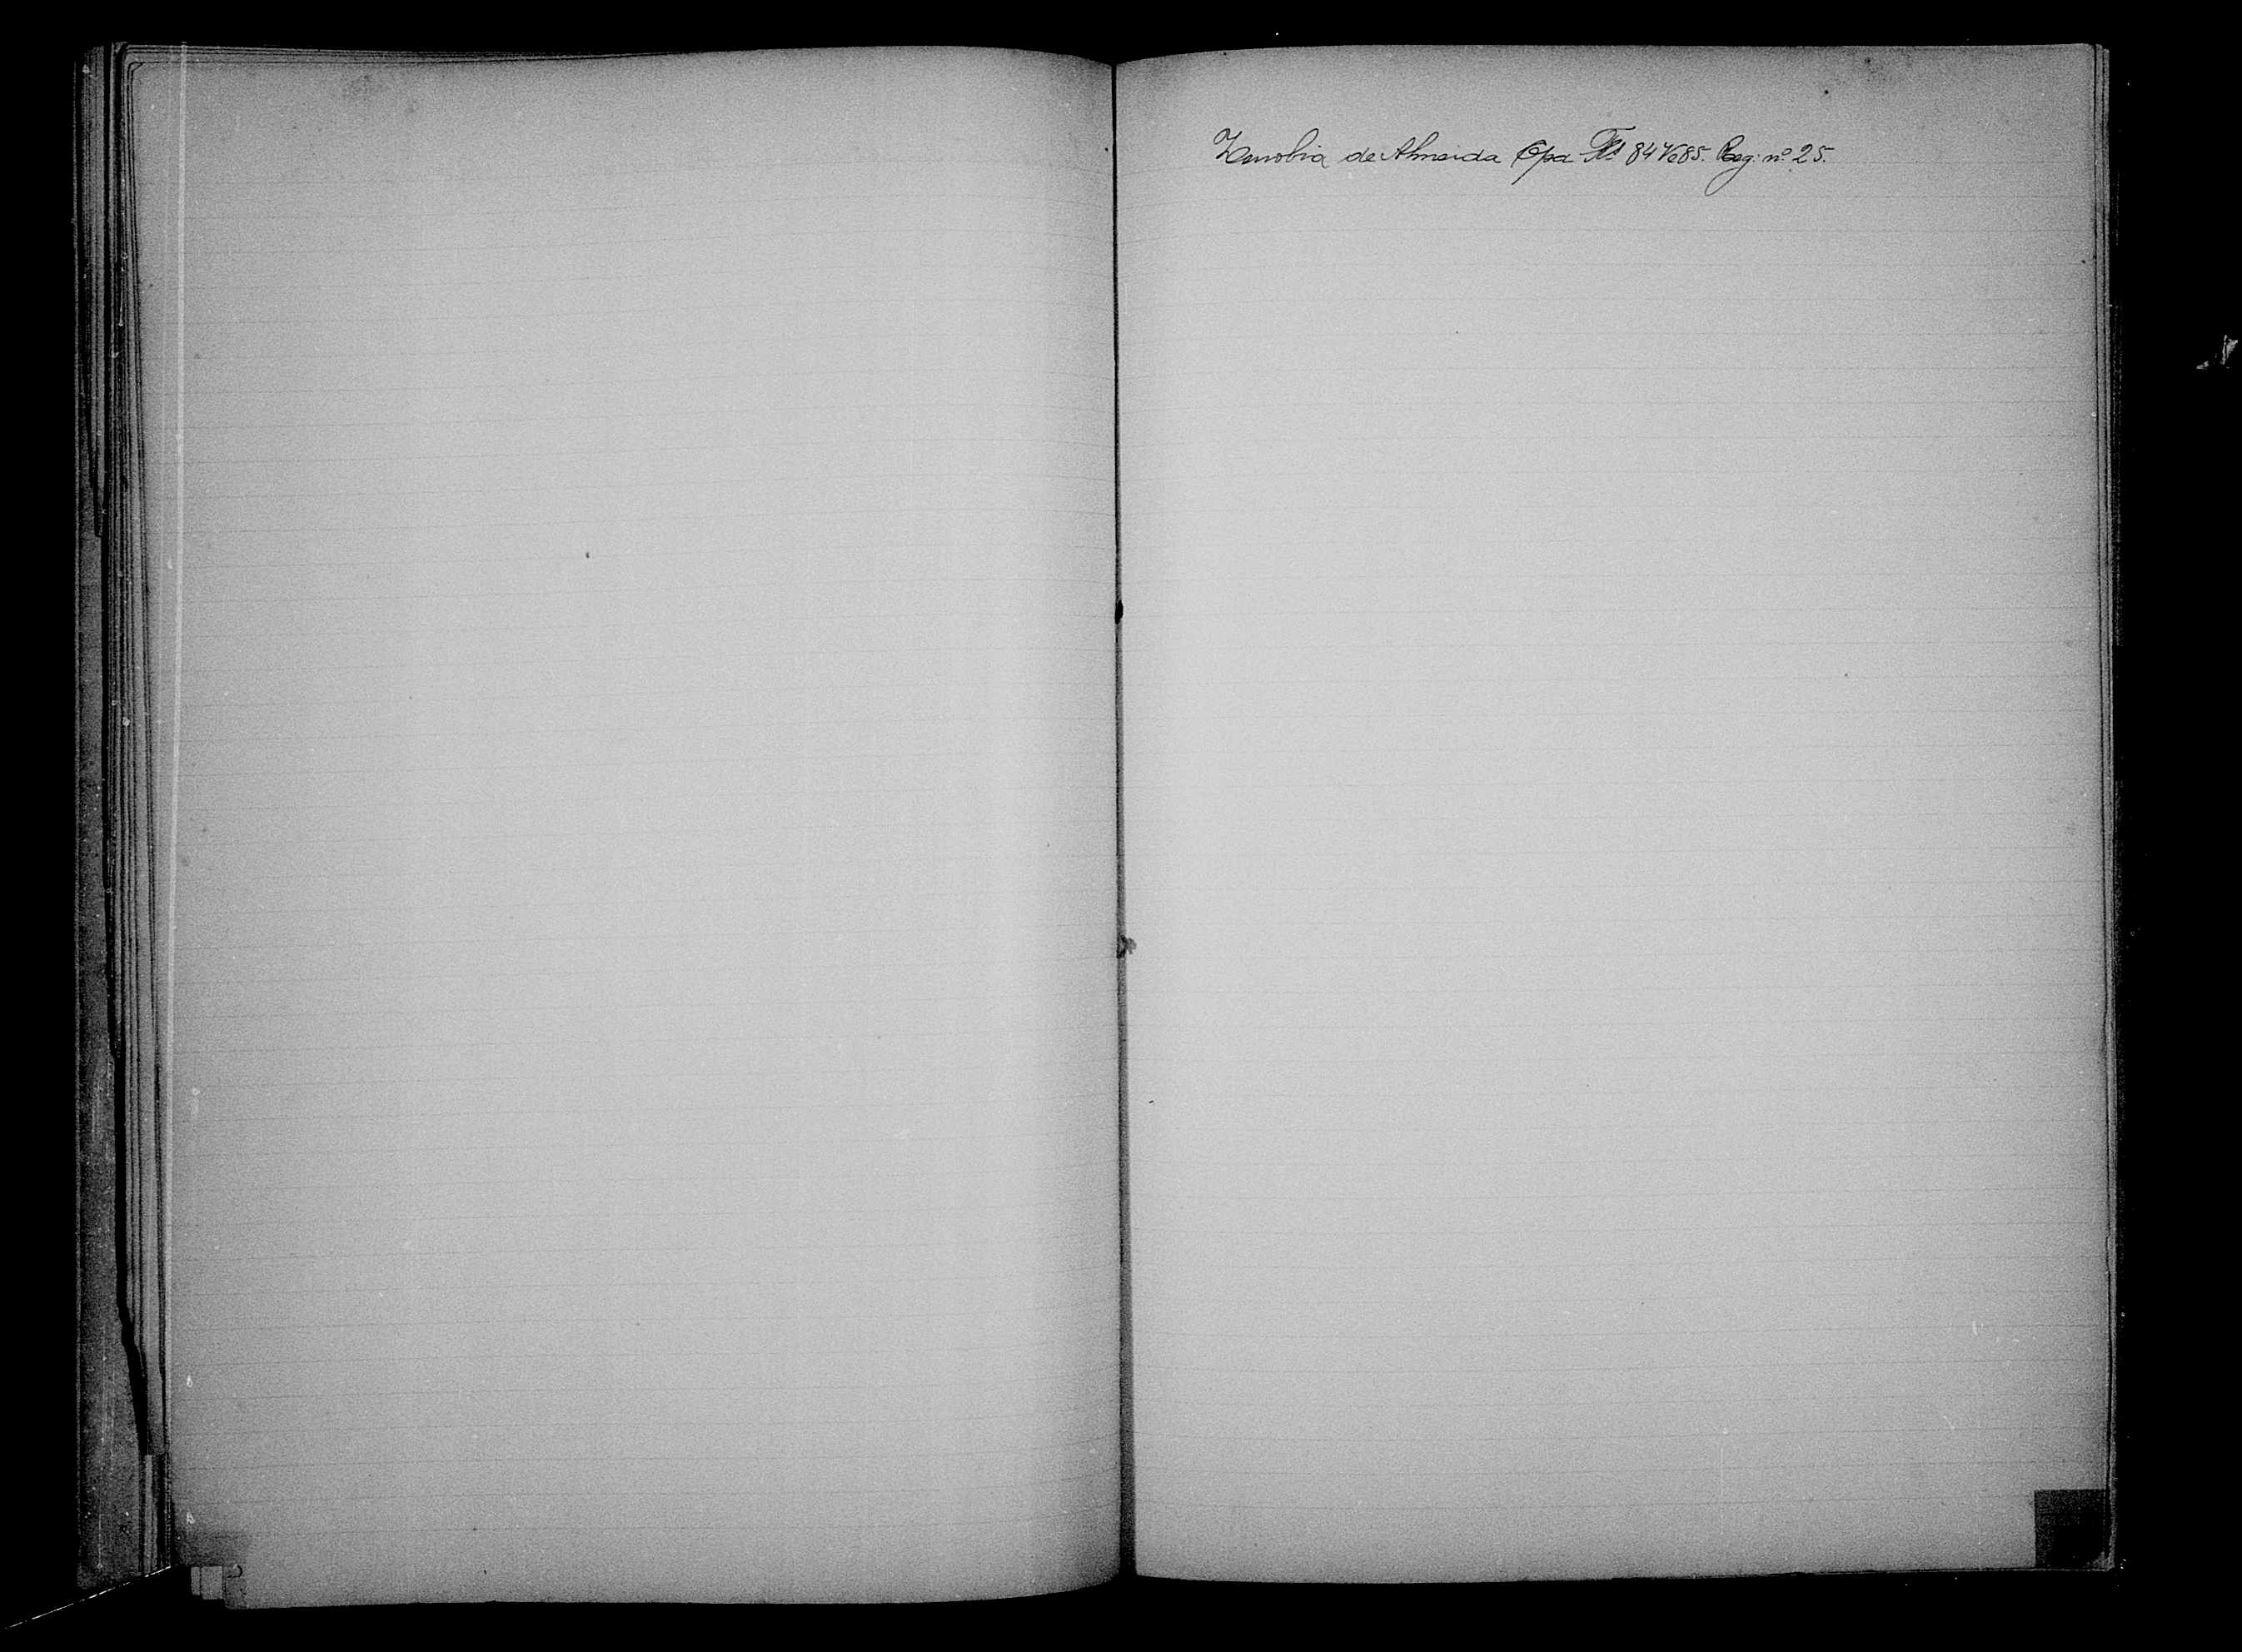 Zenobia de Almeida Opa Fls 84 Ve 85. Reg. nº 25.